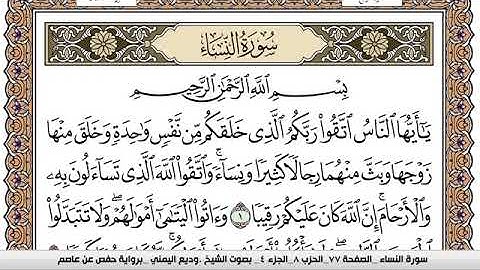 سُورَةُ النِّسَاءِ
بِسْمِ اللَّهِ الرَّحْمَٰنِ الرَّحِيمِ
يَٰٓأَيُّهَا النَّاسُ اتَّقُوا رَبَّكُمُ الَّذِي خَلَقَكُم مِّن نَّفْسٍ وَٰحِدَةٍ وَخَلَقَ مِنْهَا
زَوْجَهَا وَبَثَّ مِنْهُمَا رِجَالًا كَثِيرًا وَنِسَآءً ۚ وَاتَّقُوا اللَّهَ الَّذِي تَسَآءَلُونَ بِهِۦ
وَالْأَرْحَامَ ۚ إِنَّ اللَّهَ كَانَ عَلَيْكُمْ رَقِيبًا ١ وَءَاتُوا الْيَتَٰمَىٰٓ أَمْوَٰلَهُمْ ۖ وَلَا تَتَبَدَّلُوا
سورة النساء _ الصفحة ٧٧ _ الحزب ٨ _ الجزء ٤ _ بصوت الشيخ _وديع اليمني _برواية حفص عن عاصم